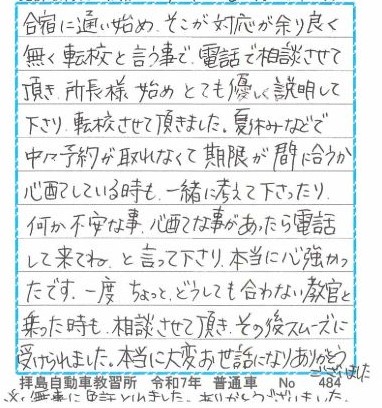 合宿に通い始め、そこが対応が余り良く
無く転校と言う事で、電話で相談させて
頂き、所長様始めとても優しく説明して
下さり、転校させて頂きました。夏休みなどで
中々予約が取れなくて期限が間に合うか
心配している時も、一緒に考えて下さったり、
何か不安な事、心配な事があったら電話
して来てね。と言って下さり、本当に心強かっ
たです。一度ちょっと、どうしても合わない教官と
乗った時も、相談させて頂き、その後スムーズに
受けられました。本当に大変お世話になりありがとう
ございました
拝島自動車教習所 令和7年 普通車 No 484
※無事に免許とれました。ありがとうございました。